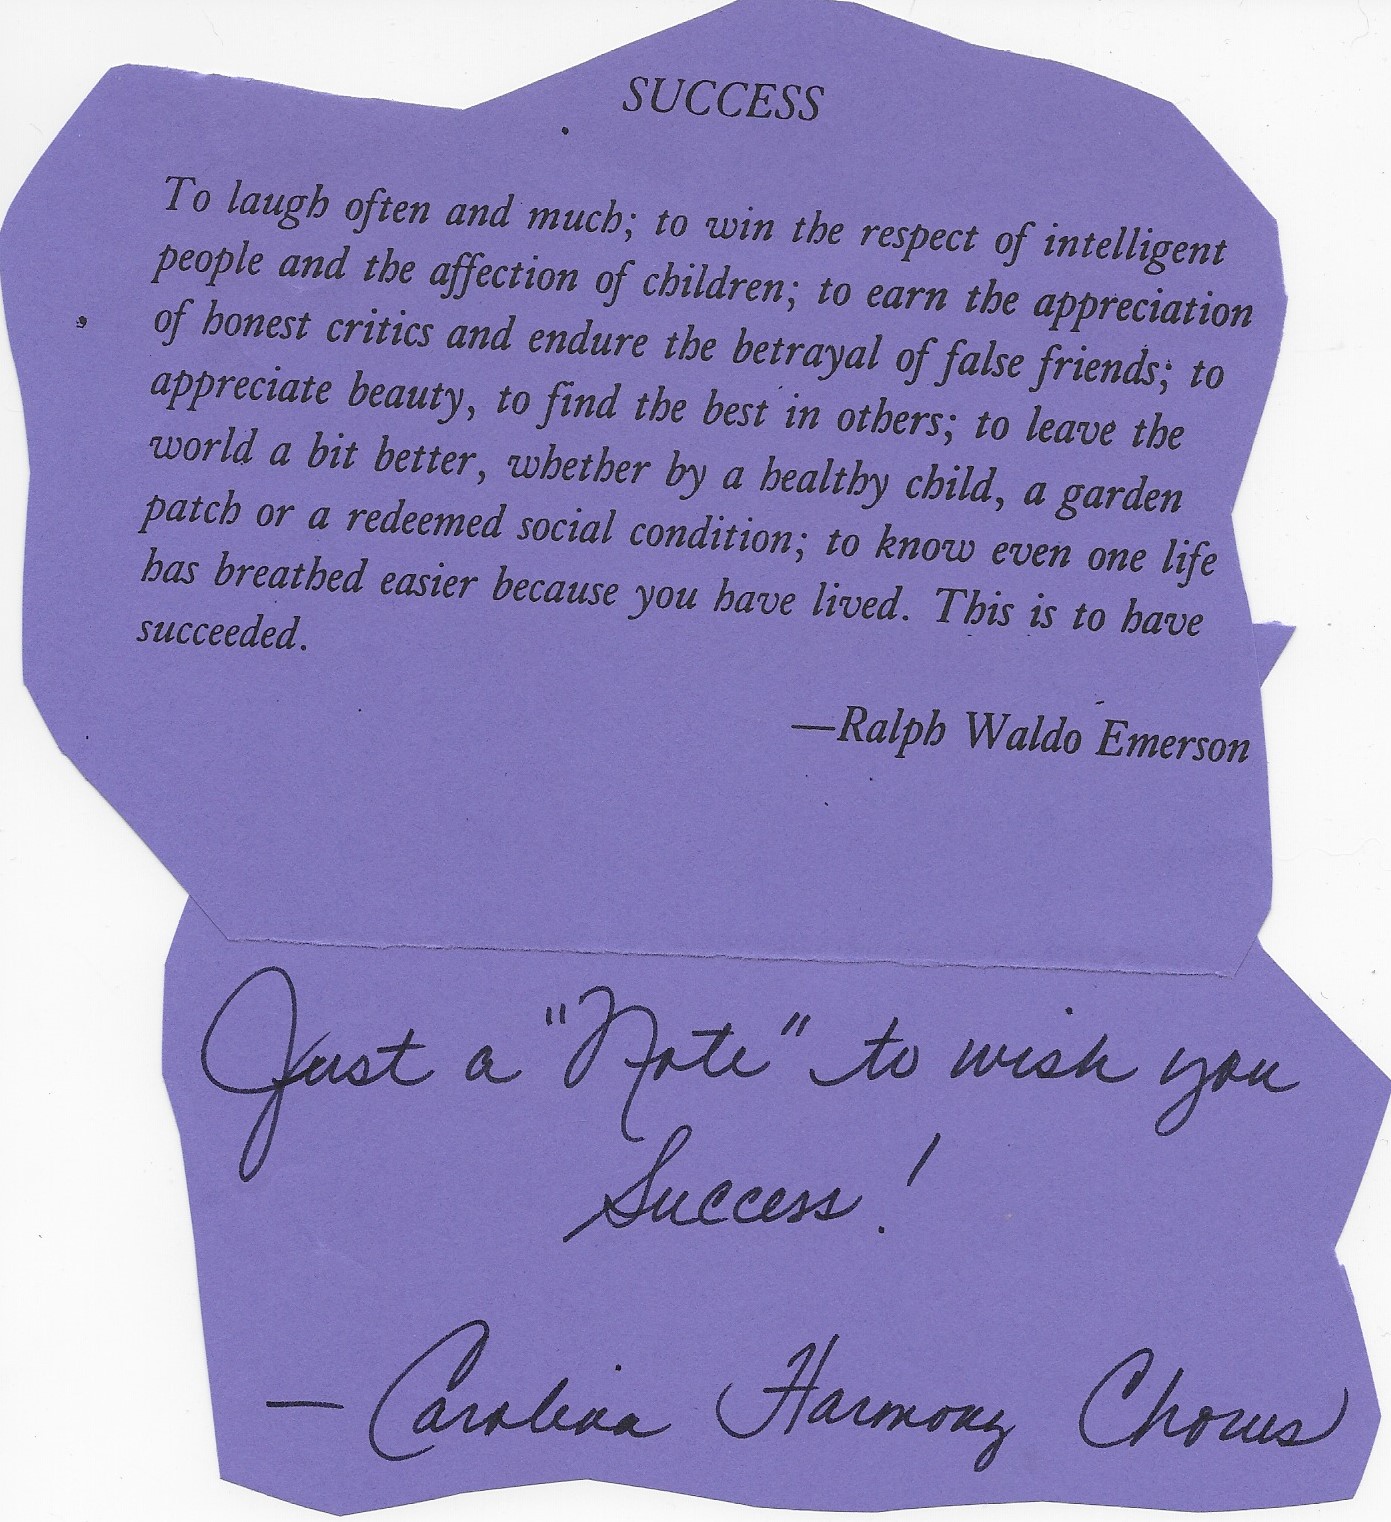 SUCCESS
To laugh often and much; to win the respect of intelligent
people and the affection of children; to earn the appreciation
of honest critics and endure the betrayal of false friends; to
appreciate beauty, to find the best in others; to leave the
world a bit better, whether by a healthy child, a garden
patch or a redeemed social condition; to know even one life
has breathed easier because you have lived. This is to have
succeeded.
—Ralph Waldo Emerson
Just a "Note" to wish you
Success!
— Carolina Harmony Chorus